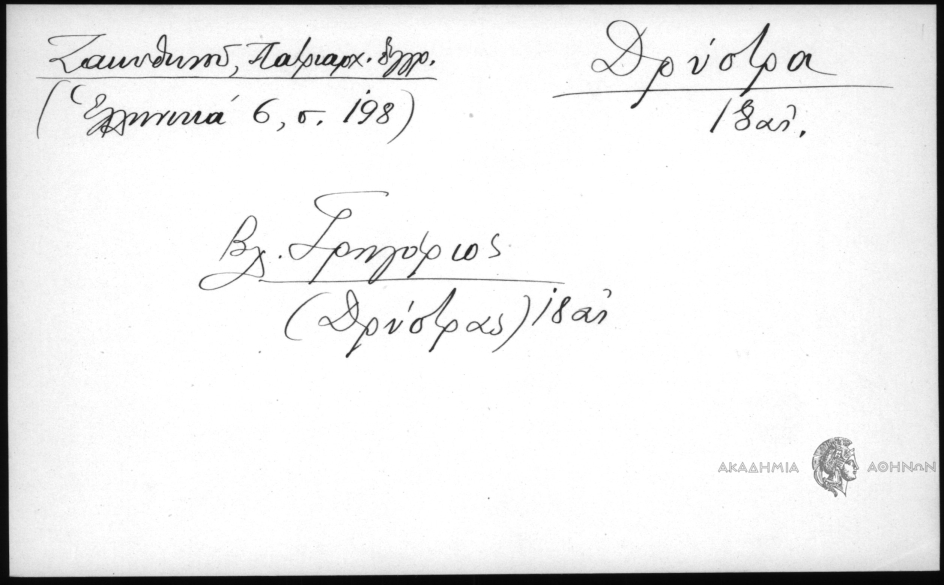 Ζακυθηνοῦ, Πατριαρχ. ἔγγρ.
(Ἑλληνικά 6, σ. 198)
Δρύστρα
18 αἰ.
βλ. Γρηγόριος
(Δρύστρας) 18 αἰ
ΑΚΑΔΗΜΙΑ ΑΘΗΝΩΝ